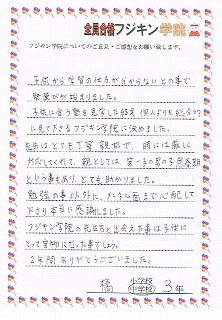 全員合格フジキン学院
フジキン学院についてのご意見・ご感想をお願い致します。
子供から学習の仕方が分からないとの事で
塾選びが始まりました。
子供に合う塾を見学した結果 個人よりも総合的
に見て下さるフジキン学院に決めました。
先生はとても丁寧 親切で、時には厳しく
対応してくれて、親としては、第一子の男の子思春期
という事もあり、とても助かりました。
勉強の事以外に、メンタル面まで心配して
下さり本当に感謝しました。
フジキン学院の先生方と出会えた事は子供に
とって宝物になった事でしょう。
2年間ありがとうございました。
橘 小学校
中学校 3年